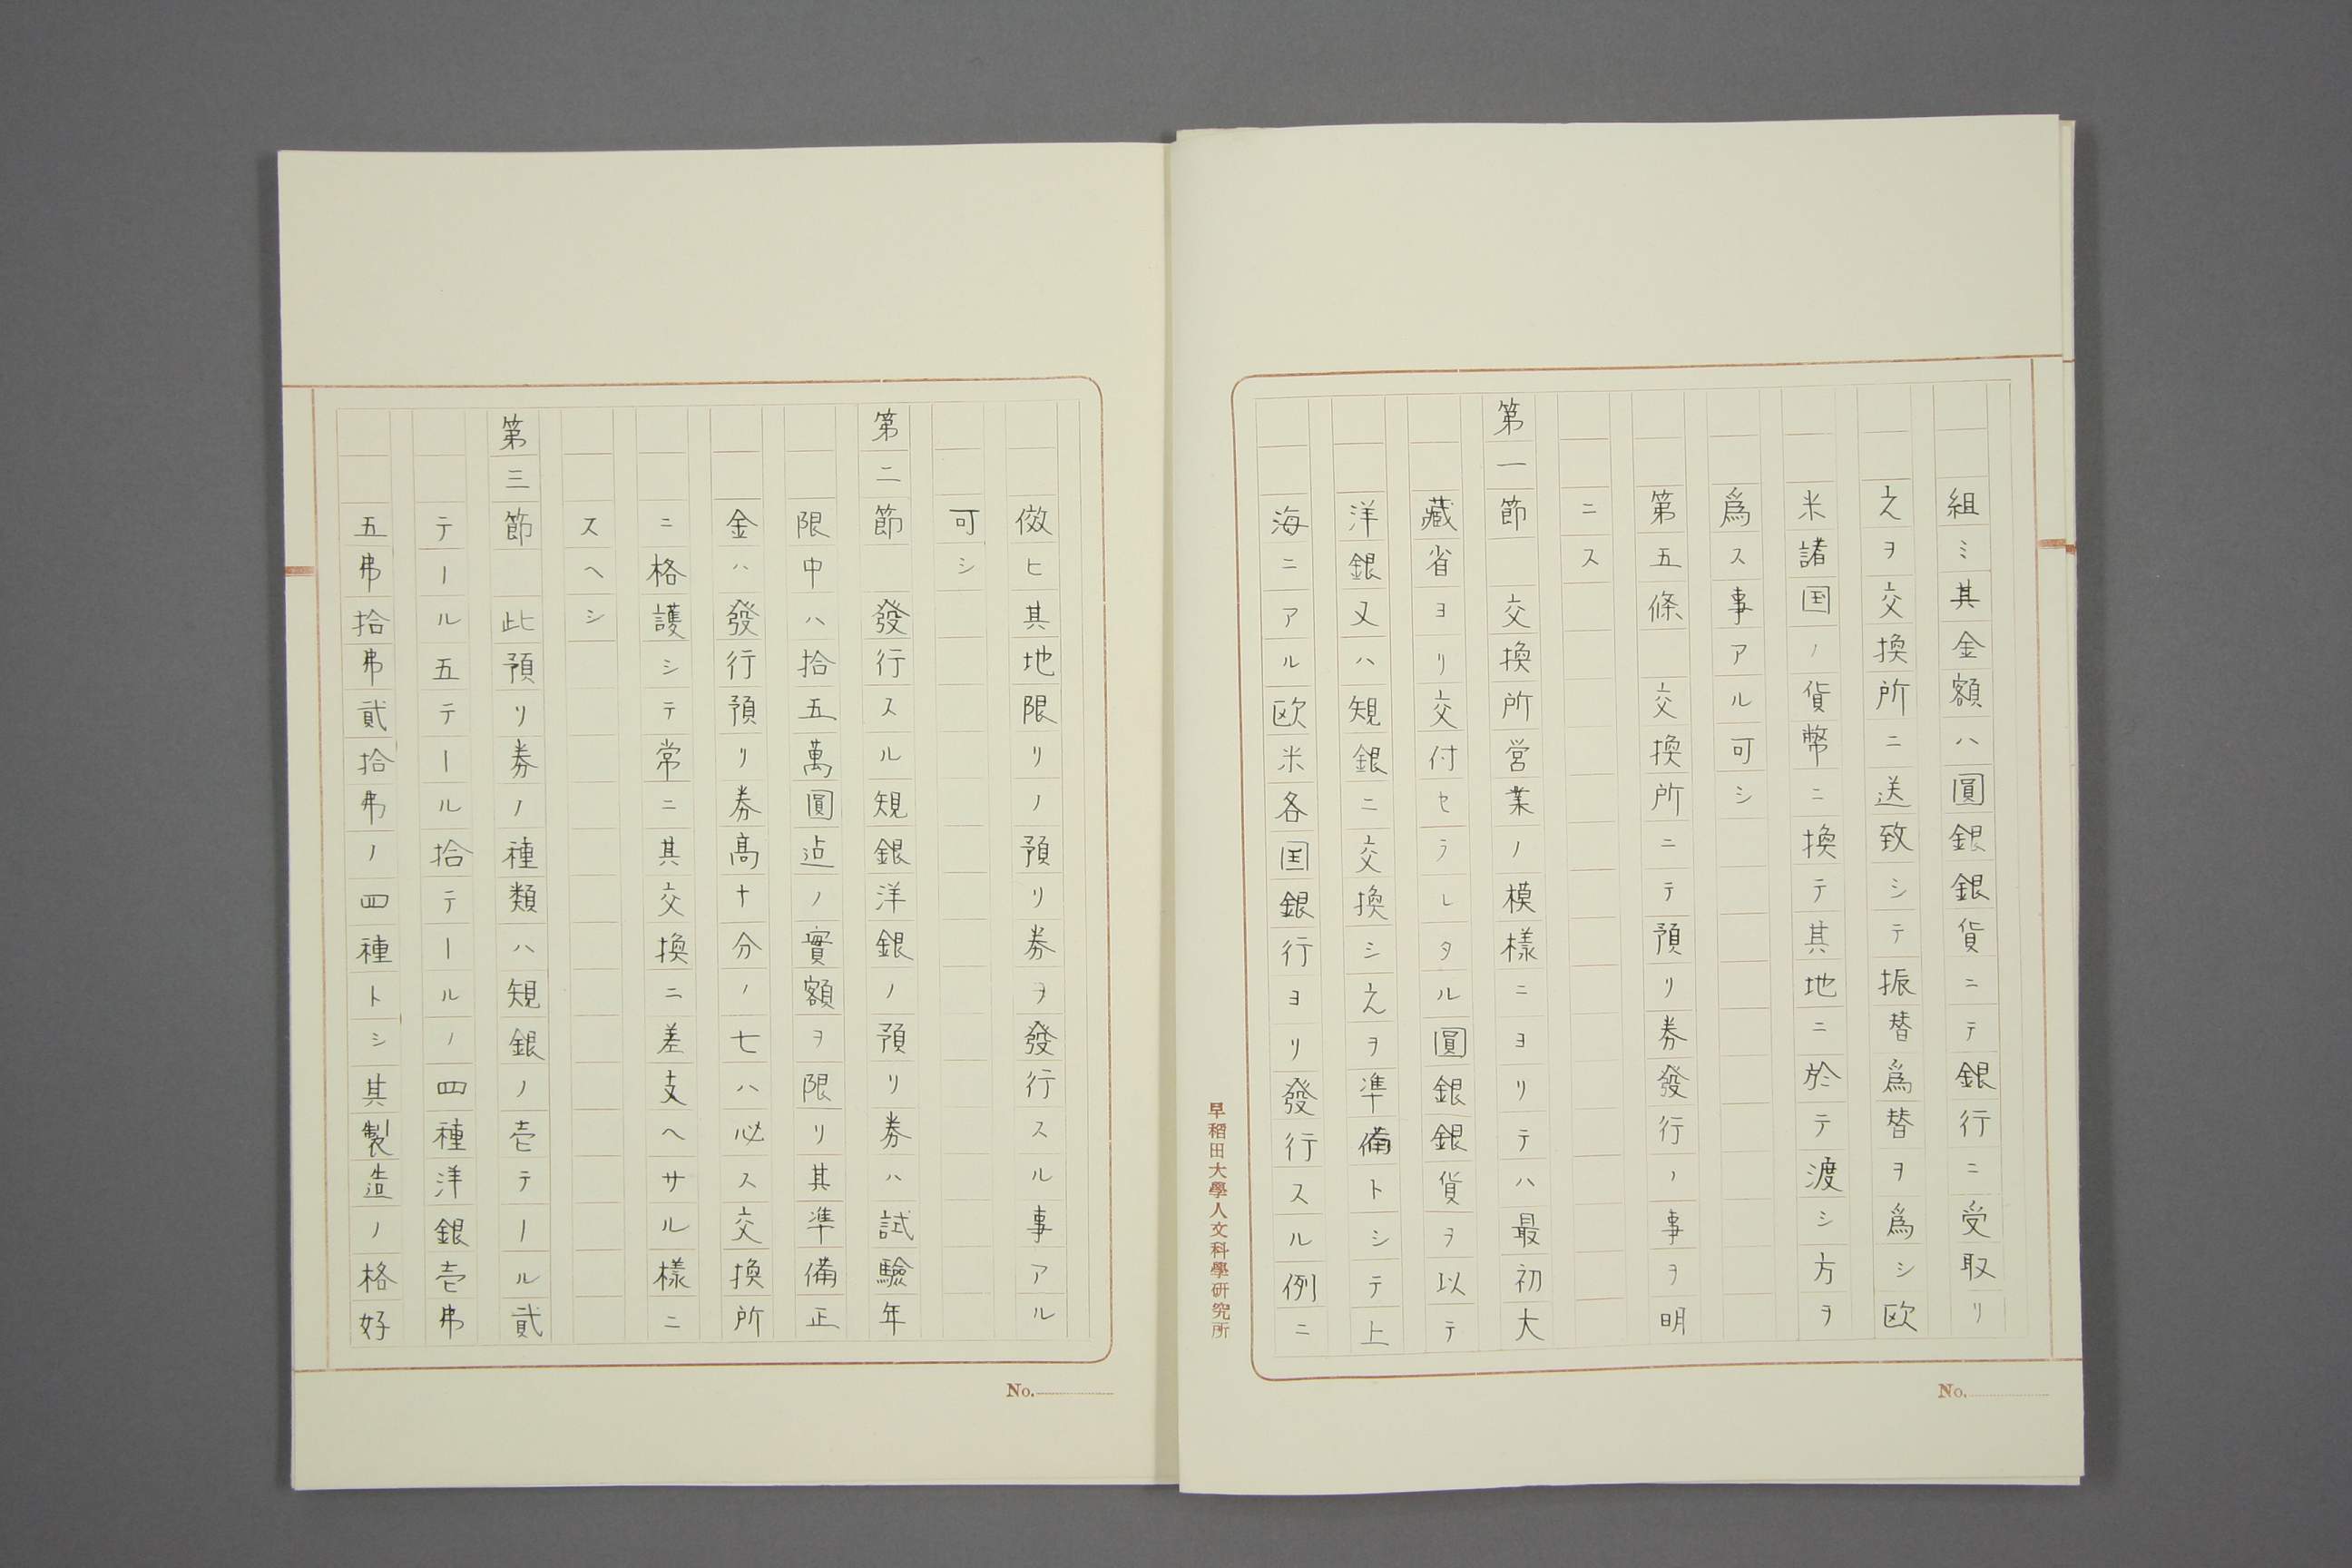 組ミ其金額ハ圓銀銀貨ニテ銀行ニ受取リ
之ヲ交換所ニ送致シテ振替爲替ヲ爲シ欧
米諸国ノ貨幣ニ換テ其地ニ於テ渡シ方ヲ
爲ス事アル可シ
第五條　交換所ニテ預リ券發行ノ事ヲ明
ニス
第一節　交換所営業ノ模樣ニヨリテハ最初大
藏省ヨリ交付セラレタル圓銀銀貨ヲ以テ
洋銀又ハ規銀ニ交換シ之ヲ準備トシテ上
海ニアル欧米各国銀行ヨリ發行スル例ニ
早稻田大學人文科學研究所
No.
倣ヒ其地限リノ預リ券ヲ發行スル事アル
可シ
第二節　發行スル規銀洋銀ノ預リ券ハ試驗年
限中ハ拾五萬圓迠ノ實額ヲ限リ其準備正
金ハ發行預リ券高十分ノ七ハ必ス交換所
ニ格護シテ常ニ其交換ニ差支ヘサル樣ニ
スヘシ
第三節　此預リ券ノ種類ハ規銀ノ壱テール貳
テール五テール拾テールノ四種洋銀壱弗
五弗拾弗貳拾弗ノ四種トシ其製造ノ格好
No.